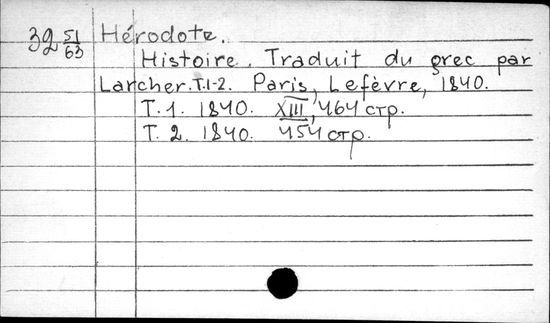 39 51/63 Hérodote.
Histoire. Traduit du grec par
Larcher. T.1-2. Paris, Lefèvre, 1840.
T. 1. 1840. XIII, 464 стр.
T. 2. 1840. 454 стр.